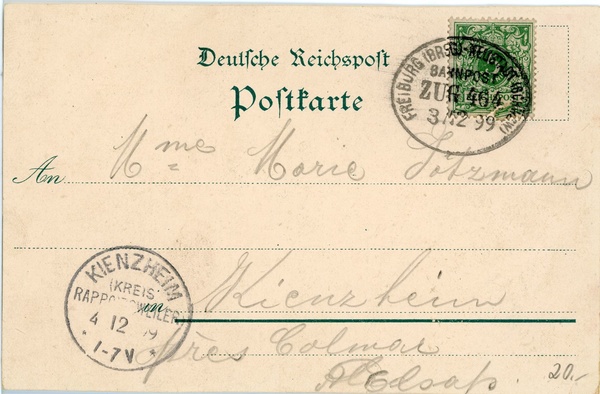 Deutsche Reichspost
Postkarte
FREIBURG (BRSG)-NEUSTADT
BAHNPOST
ZUG 464
3/12 99
Mme Marie Fotzmann
An
Kienzheim
in
près Colmar
Elsaß.
KIENZHEIM
(KREIS
RAPPOLTSWEILER)
4 12 99
1-7 V
20.-